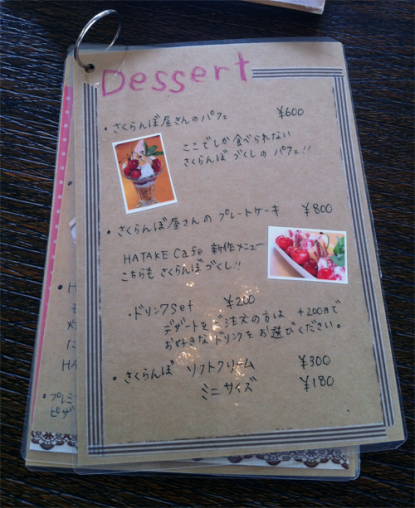 Dessert
・さくらんぼ屋さんのパフェ ¥600
ここでしか食べられない
さくらんぼづくしのパフェ!!
・さくらんぼ屋さんの プレートケーキ ¥800
HATAKE Cafe 新作メニュー
こちらも さくらんぼづくし!!
・ドリンクset ¥200
デザートをご注文の方は +200円で
お好きなドリンクをお選びください。
・さくらんぼ ソフトクリーム ¥300
ミニサイズ ¥180